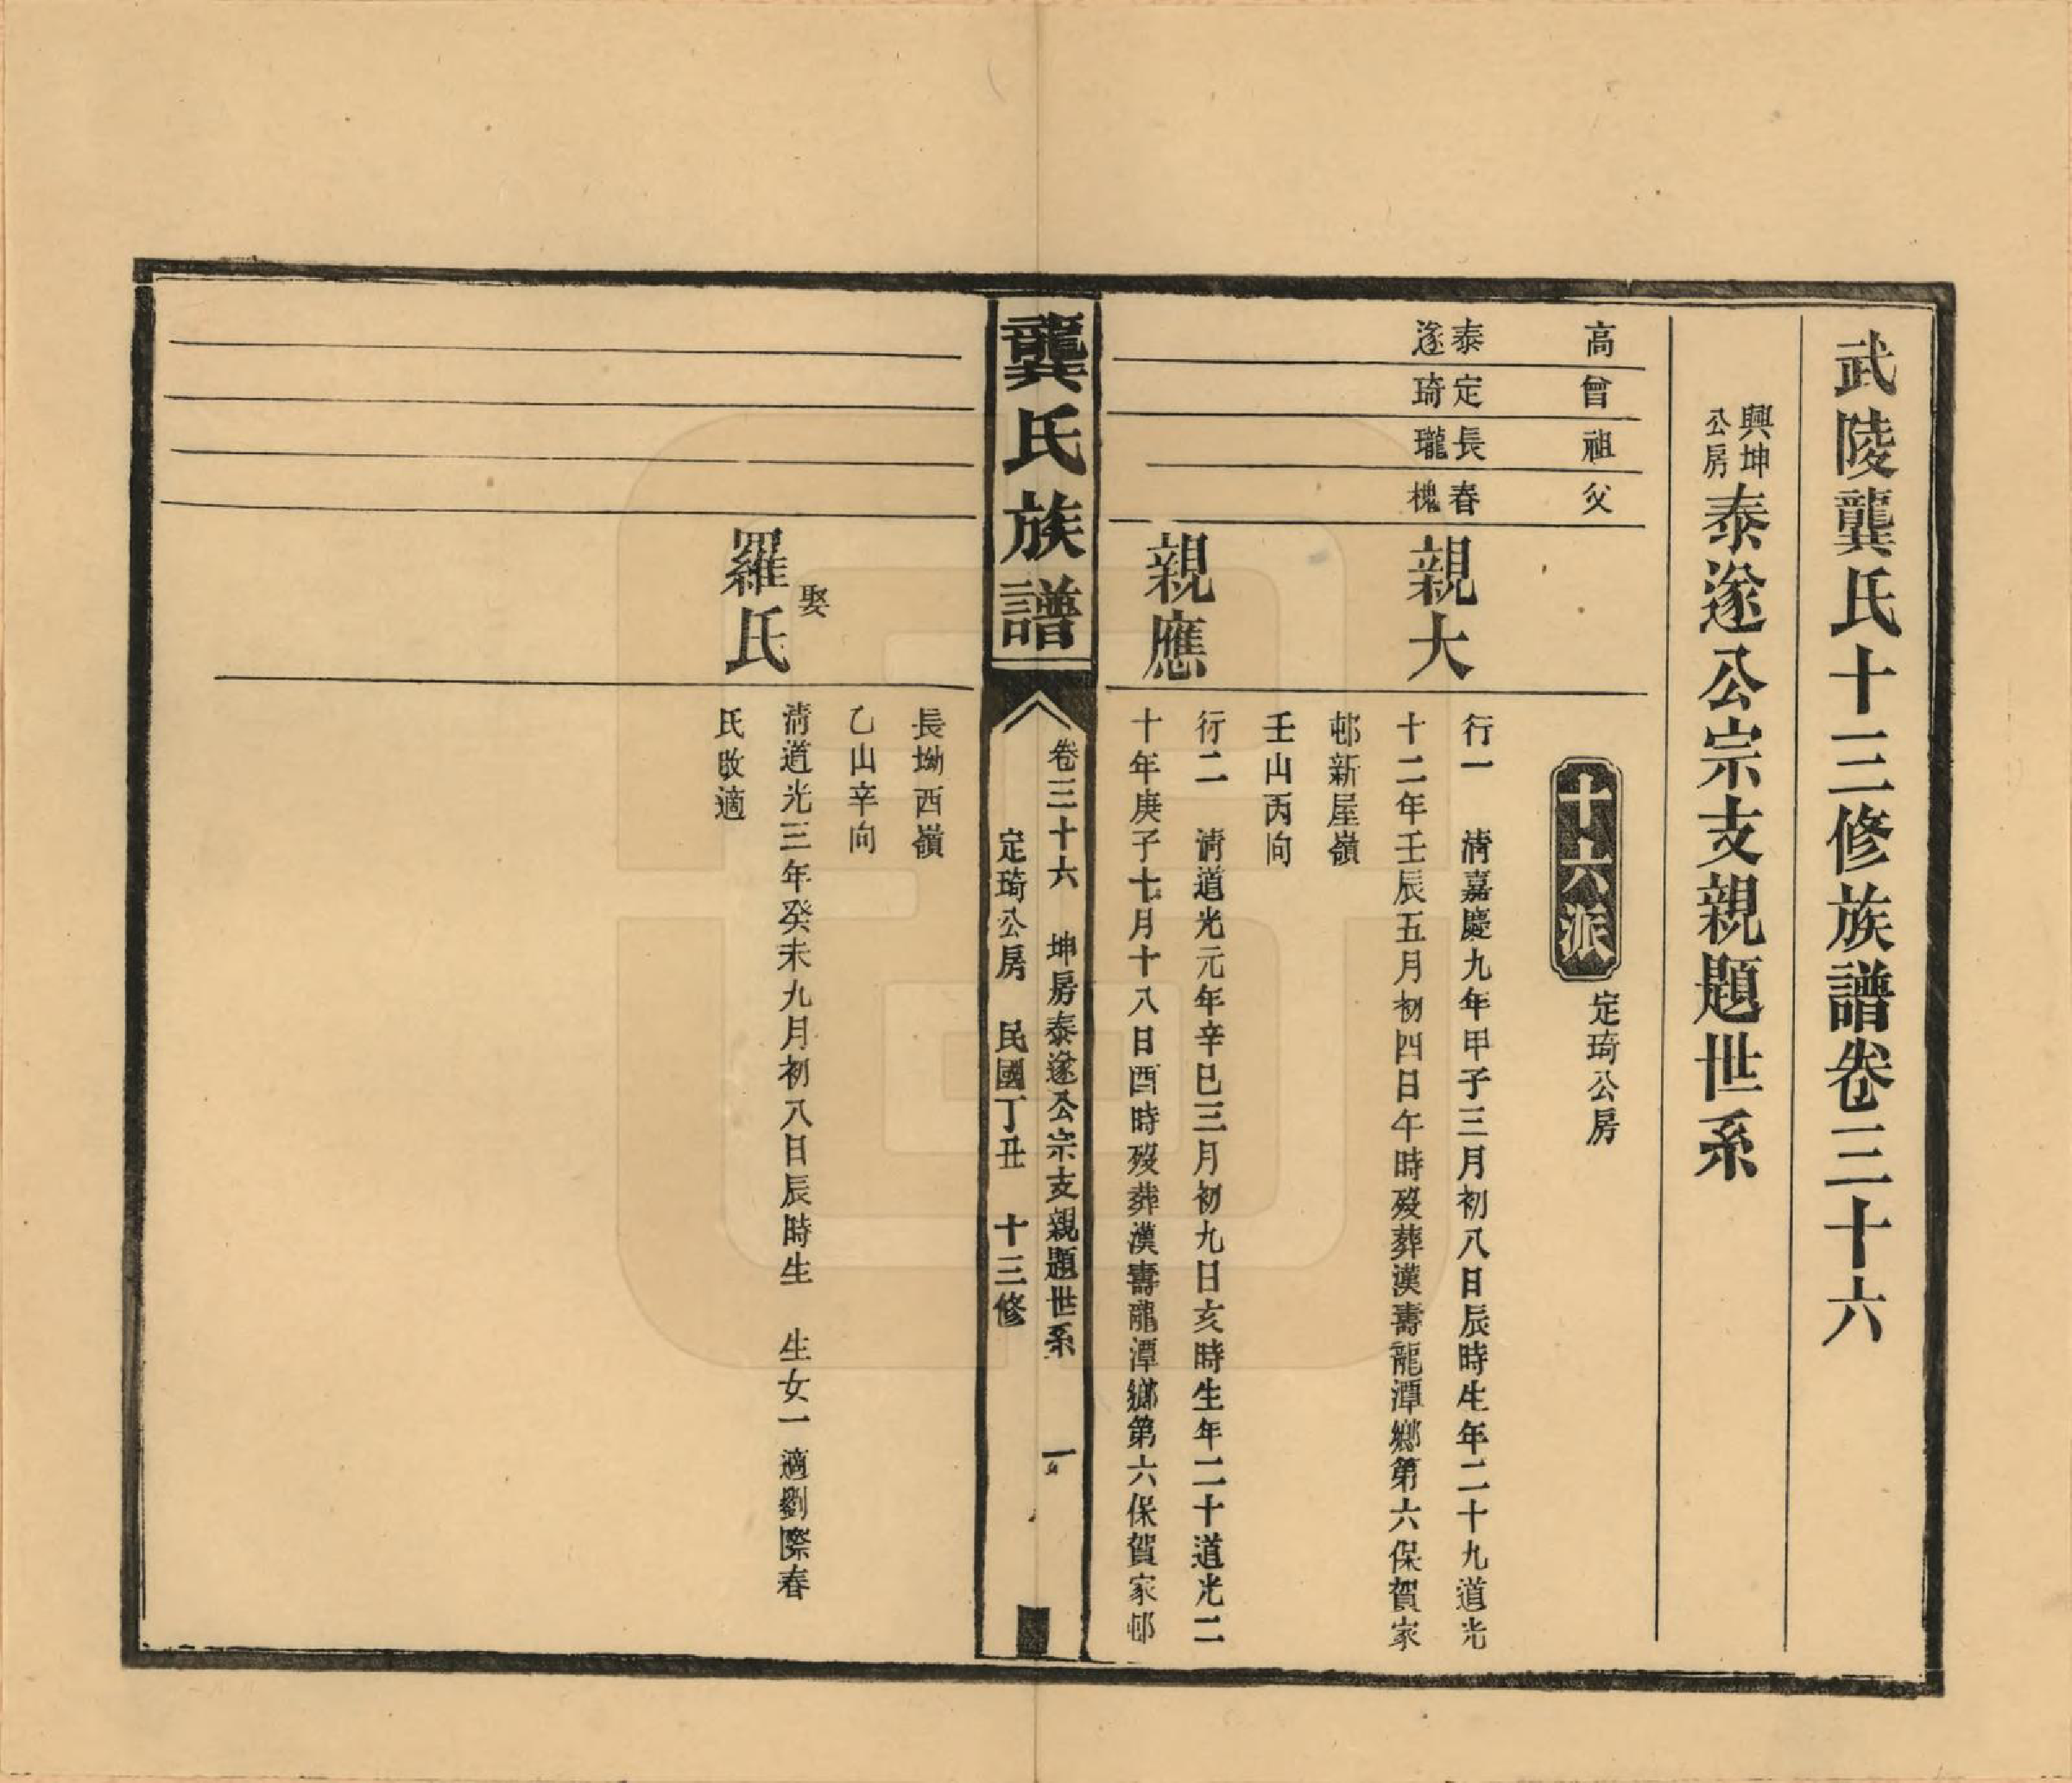 武陵龔氏十三修族譜卷三十六
興坤公房泰遂公宗支親題世系
高
曾
祖
父
十六派 定琦公房
泰遂
定琦
長瓏
春槐
親大
行一 清嘉慶九年甲子三月初八日辰時生年二十九道光
十二年壬辰五月初四日午時歿葬漢壽龍潭鄉第六保賀家
邨新屋嶺
壬山丙向
親應
行二 清道光元年辛巳三月初九日亥時生年二十道光二
十年庚子七月十八日酉時歿葬漢壽龍潭鄉第六保賀家邨
龔氏族譜
卷三十六 坤房泰遂公宗支親題世系 一
定琦公房 民國丁丑 十三修
長坳西嶺
乙山辛向
娶
羅氏
清道光三年癸未九月初八日辰時生 生女一適劉際春
氏改適